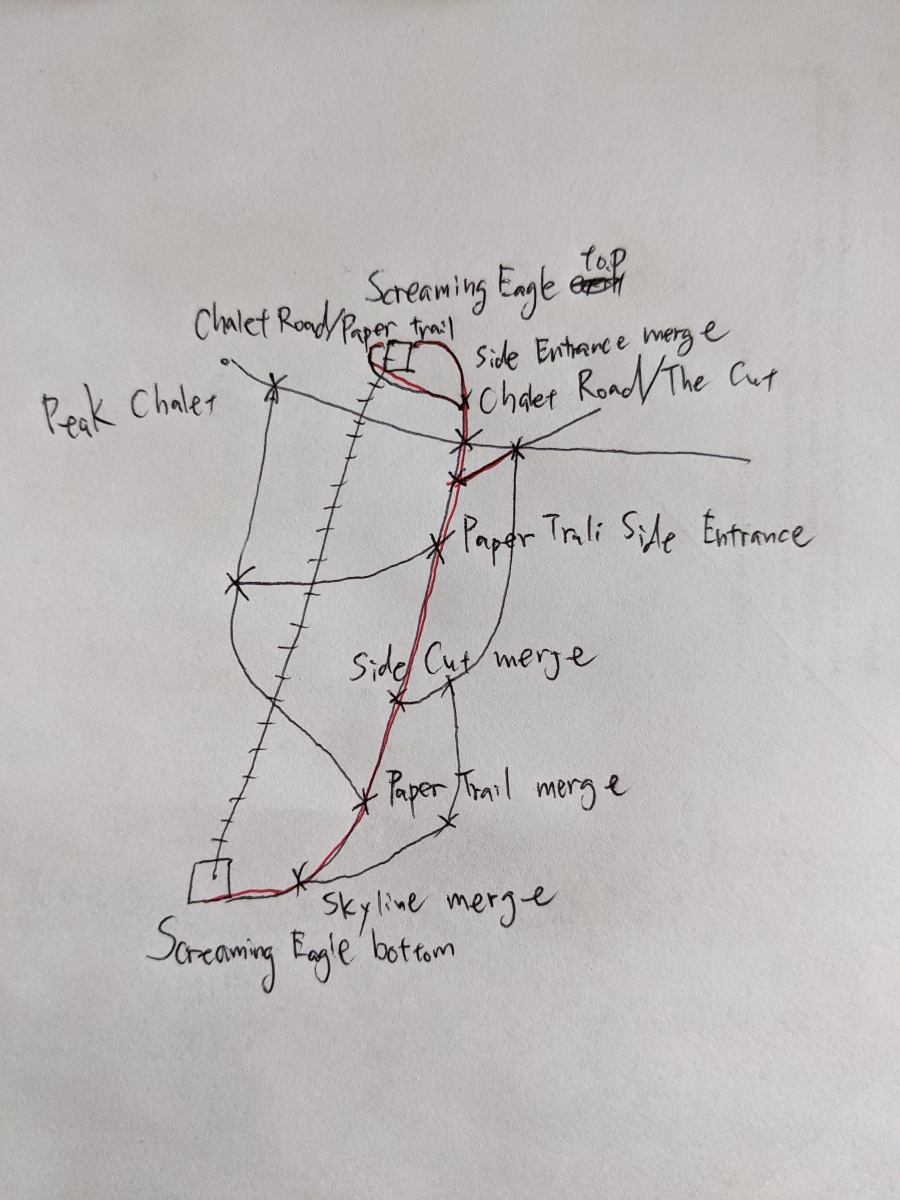 Screaming Eagle top
Chalet Road/Paper trail
Side Entrance merge
Chalet Road/The Cut
Peak Chalet
Paper Trali Side Entrance
Side Cut merge
Paper Trail merge
Skyline merge
Screaming Eagle bottom